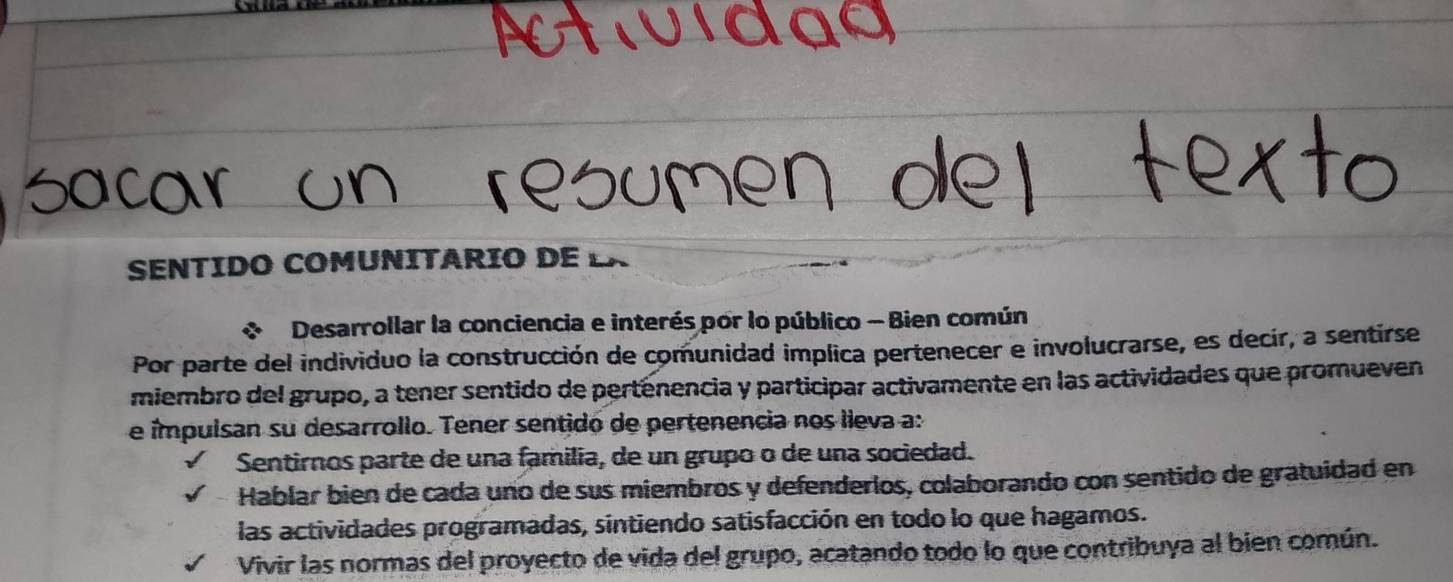 Actividad
sacar un resumen del texto
SENTIDO COMUNITARIO DE
❖ Desarrollar la conciencia e interés por lo público – Bien común
Por parte del individuo la construcción de comunidad implica pertenecer e involucrarse, es decir, a sentirse
miembro del grupo, a tener sentido de pertenencia y participar activamente en las actividades que promueven
e impulsan su desarrollo. Tener sentido de pertenencia nos lleva a:
✓ Sentirnos parte de una familia, de un grupo o de una sociedad.
✓ Hablar bien de cada uno de sus miembros y defenderlos, colaborando con sentido de gratuidad en
las actividades programadas, sintiendo satisfacción en todo lo que hagamos.
✓ Vivir las normas del proyecto de vida del grupo, acatando todo lo que contribuya al bien común.